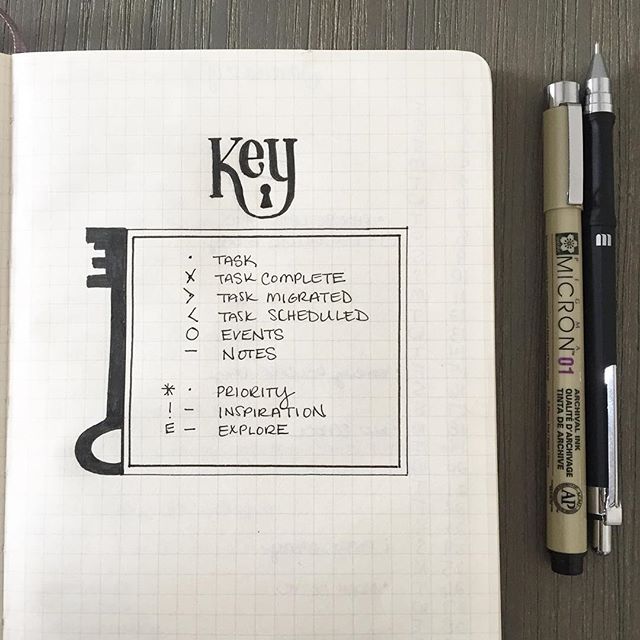 Key
· TASK
X TASK COMPLETE
> TASK MIGRATED
< TASK SCHEDULED
O EVENTS
– NOTES
* · PRIORITY
! – INSPIRATION
E – EXPLORE
PIGMA
MICRON 01
ARCHIVAL INK
QUALITÉ D'ARCHIVAGE
TINTA DE ARCHIVE
AP
m